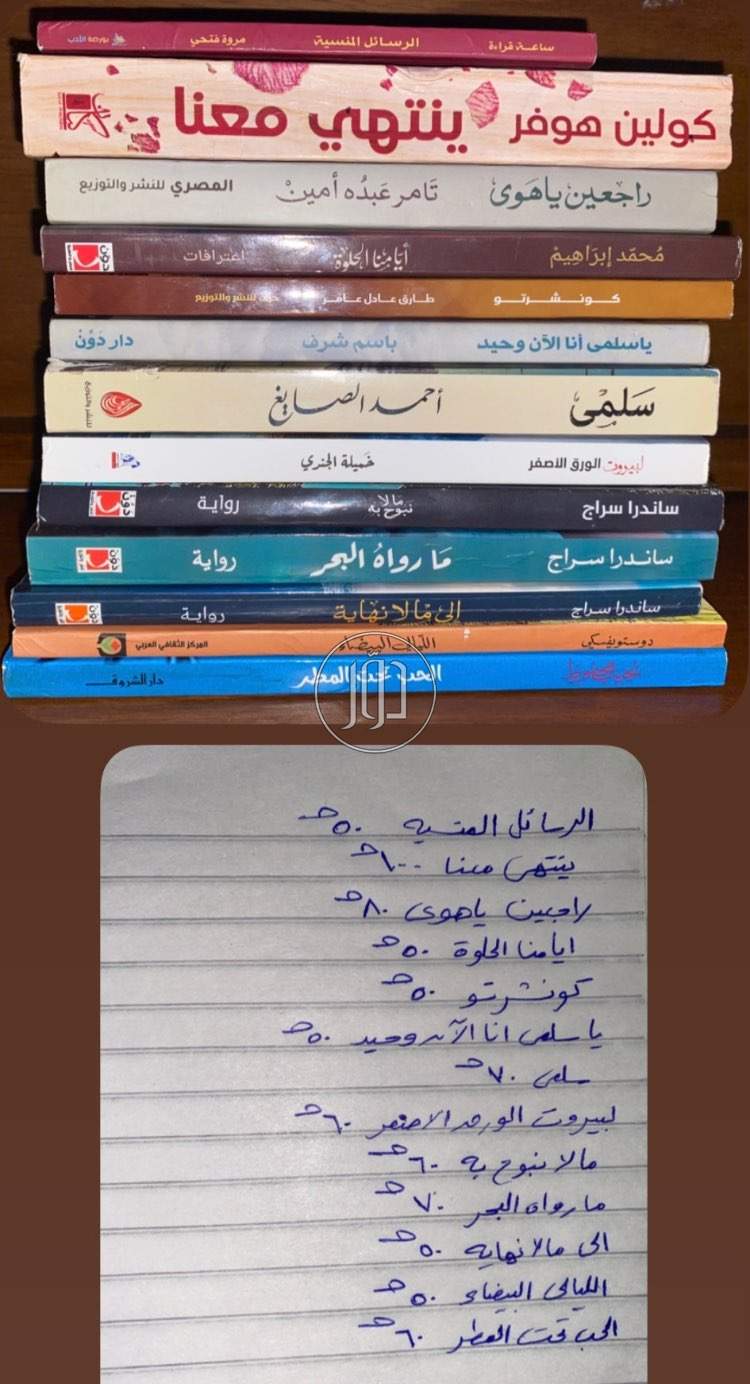 ساعة قراءة الرسائل المنسية مروة فتحي بورصة الكتب
كولين هوفر ينتهي معنا
راجعين ياهوى تامر عبده أمين المصري للنشر والتوزيع
محمد إبراهيم أيامنا الحلوة اعترافات دون
كونشرتو طارق عادل عامر للنشر والتوزيع
ياسلمى أنا الآن وحيد باسم شرف دار دون
سلمى أحمد الصايغ للنشر والتوزيع
لبيروت الورق الأصفر خميلة الجندي
ساندرا سراج مالا نبوح به رواية دون
ساندرا سراج ما رواه البحر رواية دون
ساندرا سراج إلى مالا نهاية رواية دون
دوستويفسكي الليالي البيضاء المركز الثقافي العربي
نجيب محفوظ الحب تحت المطر دار الشروق
دوّر
الرسائل المنسيه ٥٠ ج
ينتهى معنا ١٠٠ ج
راجعين ياهوى ٨٠ ج
ايامنا الحلوة ٥٠ ج
كونشرتو ٥٠ ج
يا سلمى انا الآن وحيد ٥٠ ج
سلمى ٧٠ ج
لبيروت الورق الاصفر ٦٠ ج
مالا نبوح به ٦٠ ج
مارواه البحر ٧٠ ج
الى مالا نهايه ٥٠ ج
الليالى البيضاء ٥٠ ج
الحب تحت المطر ٦٠ ج